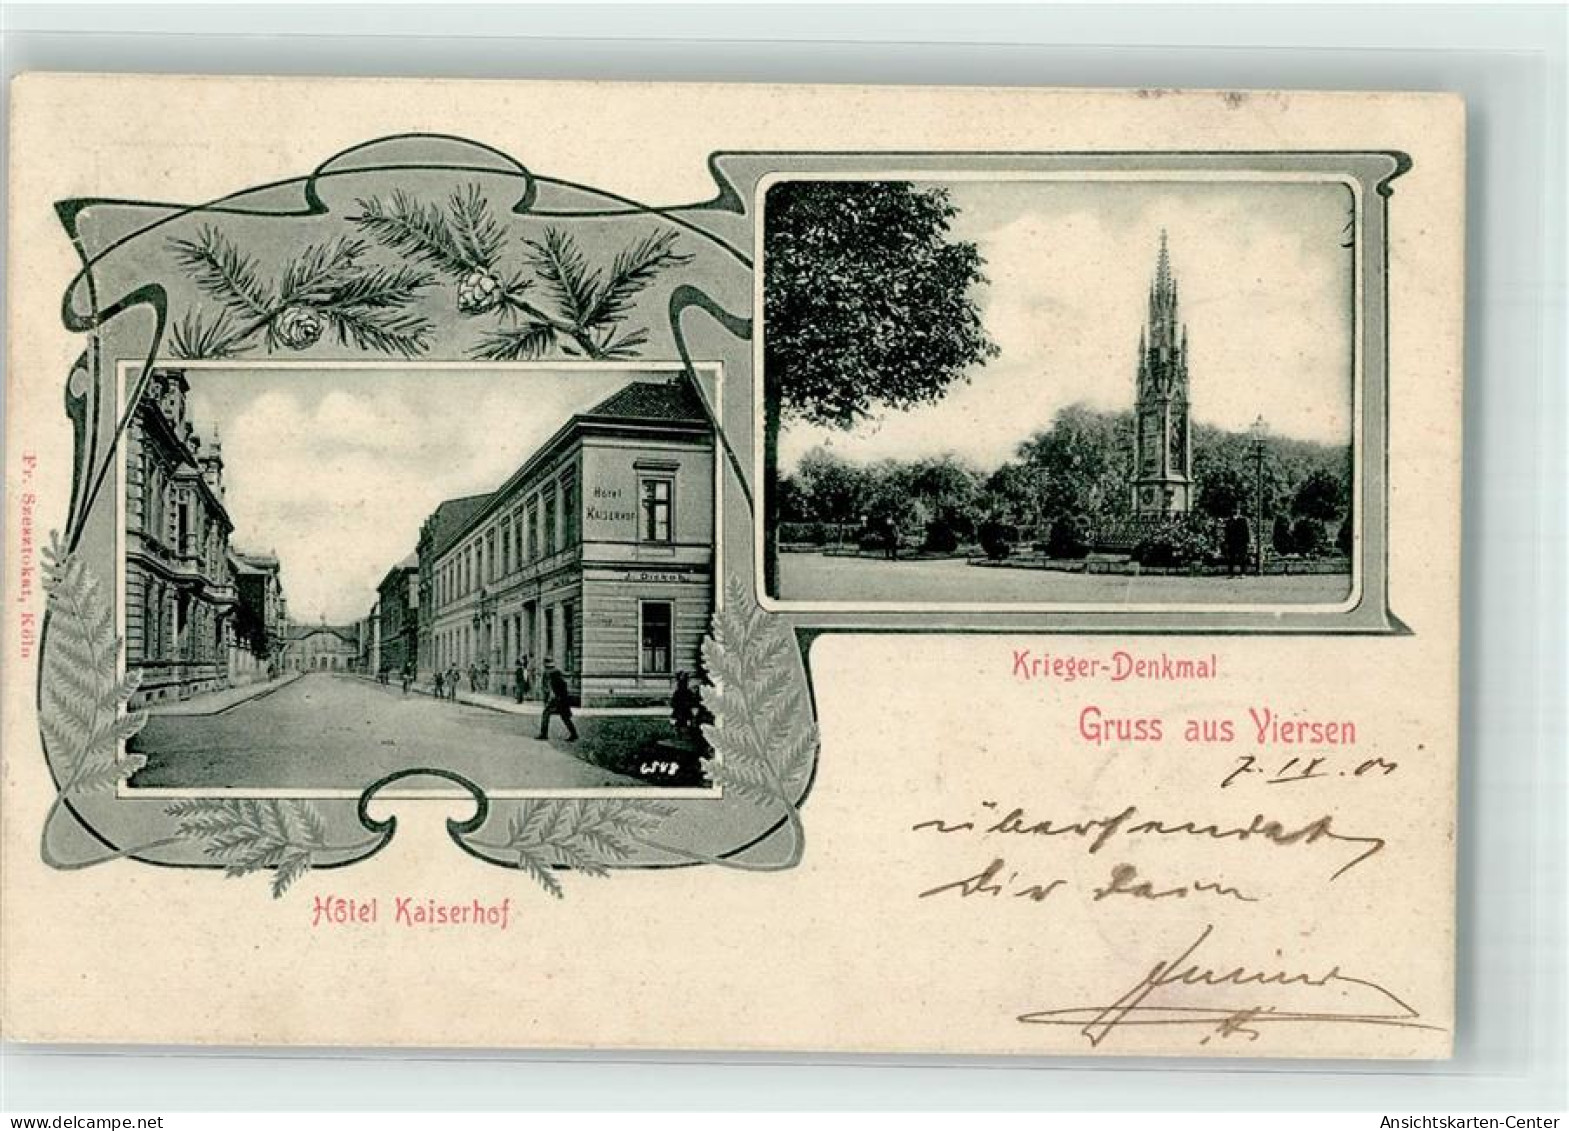 Fr. Szesztokat, Köln
Hotel
KAISERHOF
6548
Hôtel Kaiserhof
Krieger-Denkmal
Gruss aus Viersen
7. IX. 01
übersendet
Dir Dein
AnsichtsKarten-Center